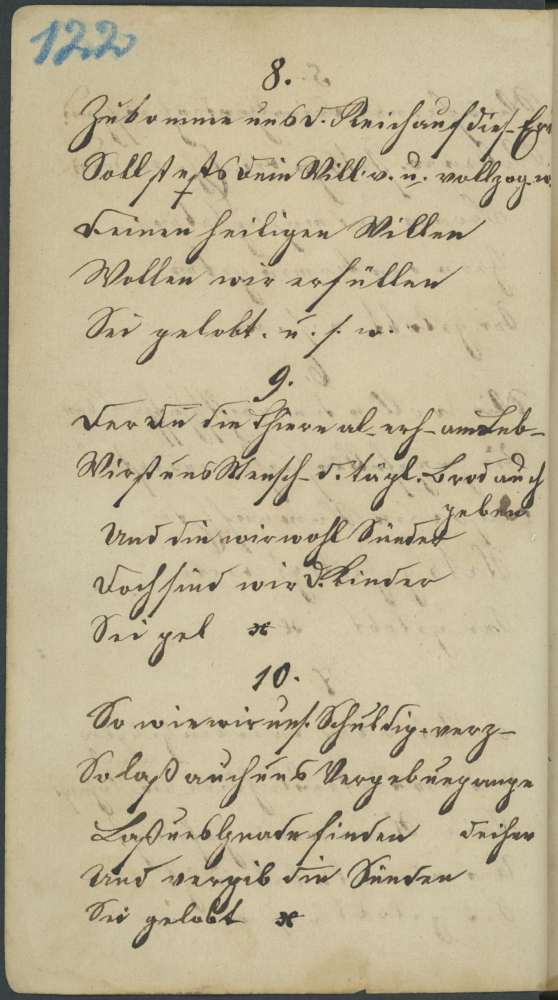 122
8.
Zukomme uns d. Reich auf dies. Erd
Soll stets dein Will v. u. vollzog. w.
Deinen heiligen Willen
Wollen wir erfüllen
Sei gelobt. u. s. w.
9.
Der Du die Thiere al. erh. am Leb.
Wirst uns Mensch. d. tägl. Brod auch
geben
Und die wir wohl Sünder
Doch sind wir D. Kinder
Sei gel
10.
So wie wir uns. Schuldig. verz.
So laß auch uns Vergebung ange
Laß uns Gnade finden deihen
Und vergib die Sünden
Sei gelobt